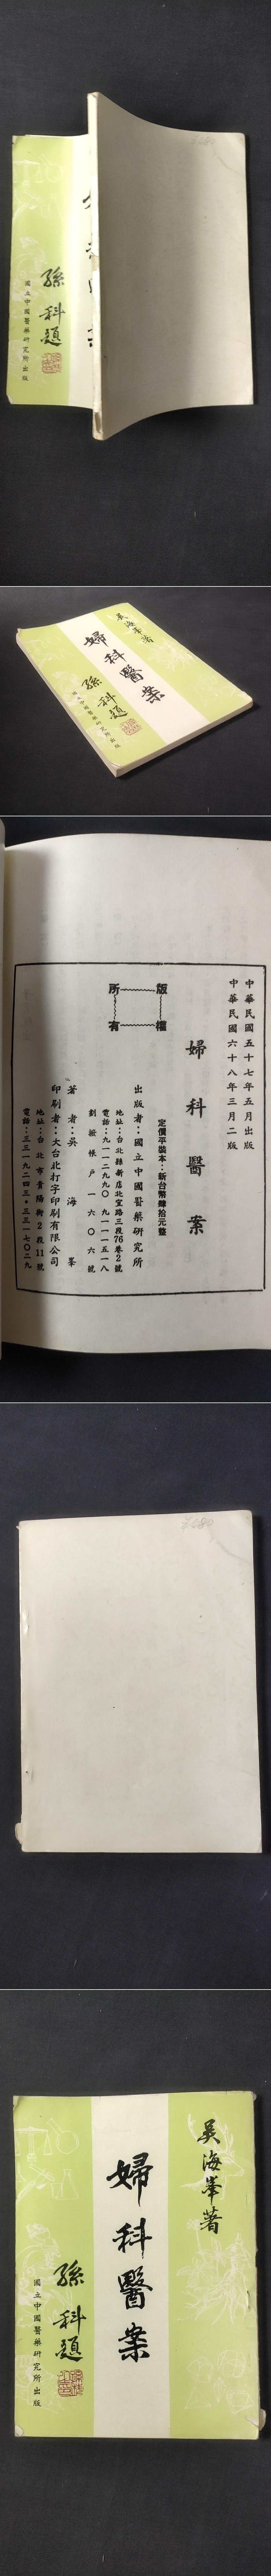 孫科題
國立中國醫藥研究所出版
吳海峯著
婦科醫案
孫科題
國立中國醫藥研究所出版
中華民國五十七年五月出版
中華民國六十八年三月二版
婦科醫案
版權所有
定價平裝本：新台幣肆拾元整
出版者：國立中國醫藥研究所
地址：台北縣新店北宜路三段76巷2號
電話：九一一二九九〇 九一一一五一八
劃撥帳戶一六〇六號
著者：吳海峯
印刷者：大台北打字印刷有限公司
地址：台北市貴陽街2段11號
電話：三三一九二四三・三三一七〇二九
吳海峯著
婦科醫案
孫科題
國立中國醫藥研究所出版